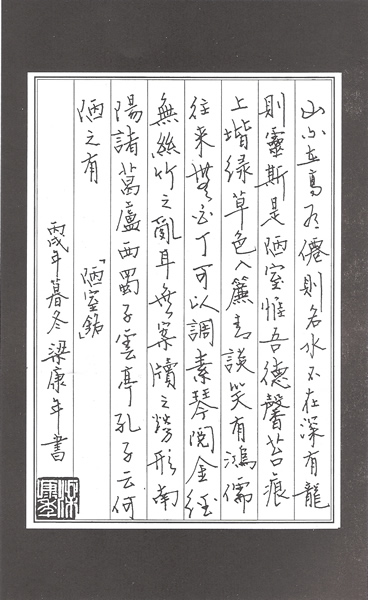 山不在高有僊則名水不在深有龍
則靈斯是陋室惟吾德馨苔痕
上堦緑草色入簾青談笑有鴻儒
往来無白丁可以調素琴閱金经
無絲竹之亂耳無案牘之勞形南
陽諸葛廬西蜀子雲亭孔子云何
陋之有
「陋室銘」
丙戌年暮冬梁康年書